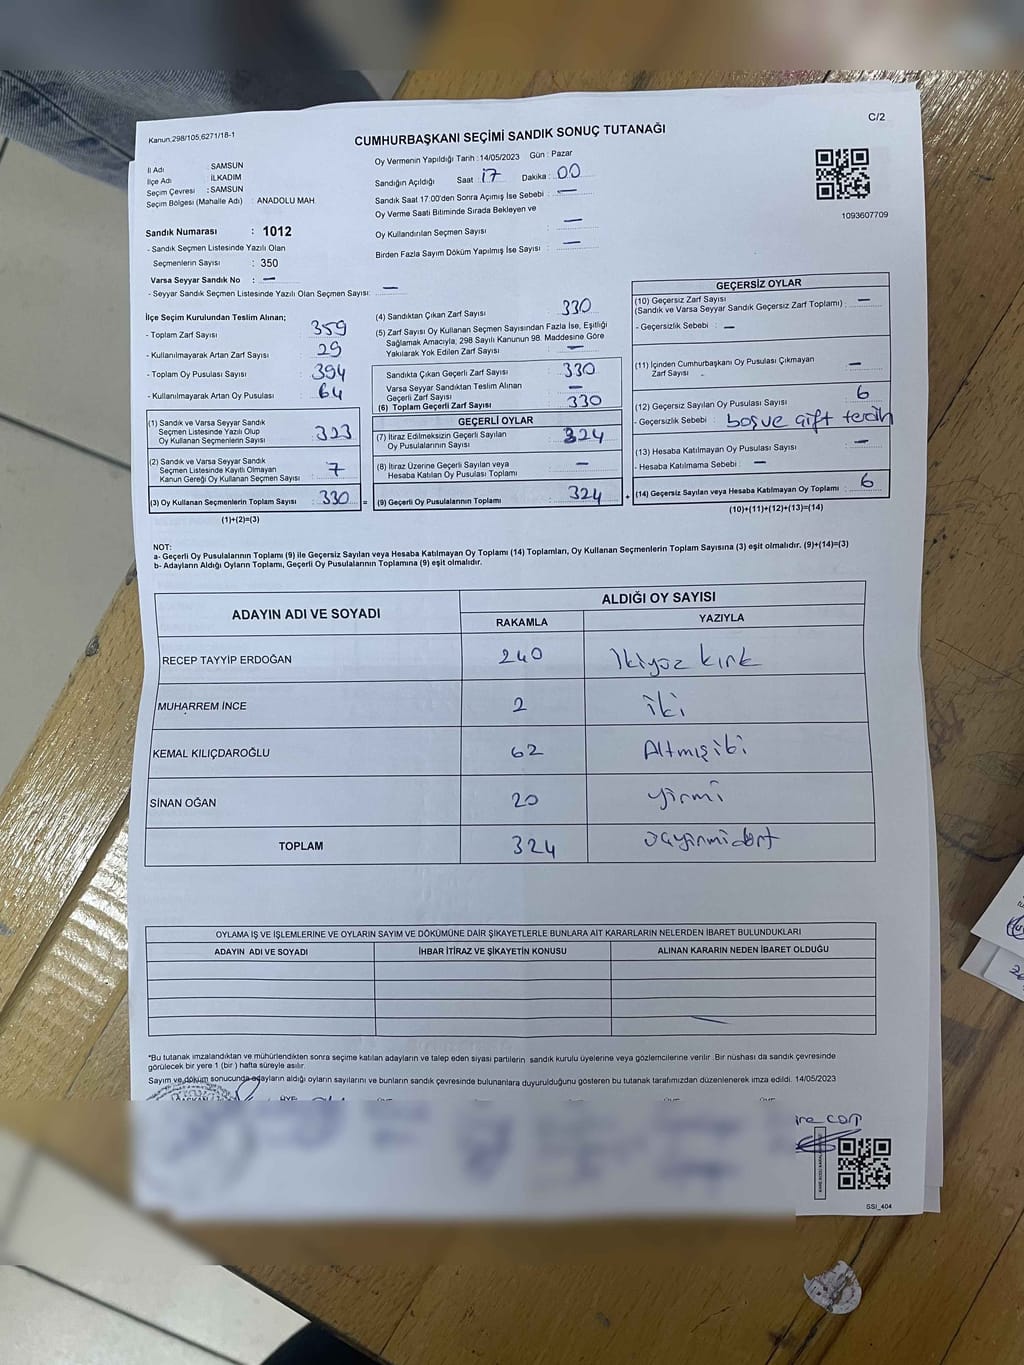 Kanun:298/105,6271/18-1
CUMHURBAŞKANI SEÇİMİ SANDIK SONUÇ TUTANAĞI
C/2
İl Adı : SAMSUN
İlçe Adı İLKADIM
Seçim Çevresi : SAMSUN
Seçim Bölgesi (Mahalle Adı) : ANADOLU MAH.
Oy Vermenin Yapıldığı Tarih :14/05/2023 Gün : Pazar
Sandığın Açıldığı Saat 17 Dakika : 00
Sandık Saat 17:00'den Sonra Açımış İse Sebebi : —
Oy Verme Saati Bitiminde Sırada Bekleyen ve
Oy Kullandırılan Seçmen Sayısı : —
Birden Fazla Sayım Döküm Yapılmış İse Sayısı : —
1093607709
Sandık Numarası : 1012
- Sandık Seçmen Listesinde Yazılı Olan
Seçmenlerin Sayısı : 350
Varsa Seyyar Sandık No : —
- Seyyar Sandık Seçmen Listesinde Yazılı Olan Seçmen Sayısı: —
İlçe Seçim Kurulundan Teslim Alınan;
- Toplam Zarf Sayısı : 359
- Kullanılmayarak Artan Zarf Sayısı : 29
- Toplam Oy Pusulası Sayısı : 394
- Kullanılmayarak Artan Oy Pusulası : 64
(1) Sandık ve Varsa Seyyar Sandık
Seçmen Listesinde Yazılı Olup
Oy Kullanan Seçmenlerin Sayısı : 323
(2) Sandık ve Varsa Seyyar Sandık
Seçmen Listesinde Kayıtlı Olmayan
Kanun Gereği Oy Kullanan Seçmen Sayısı : 7
(3) Oy Kullanan Seçmenlerin Toplam Sayısı : 330 =
(1)+(2)=(3)
(4) Sandıktan Çıkan Zarf Sayısı : 330
(5) Zarf Sayısı Oy Kullanan Seçmen Sayısından Fazla İse, Eşitliği
Sağlamak Amacıyla, 298 Sayılı Kanunun 98. Maddesine Göre
Yakılarak Yok Edilen Zarf Sayısı : —
Sandıkta Çıkan Geçerli Zarf Sayısı : 330
Varsa Seyyar Sandıktan Teslim Alınan
Geçerli Zarf Sayısı : —
(6) Toplam Geçerli Zarf Sayısı : 330
GEÇERLİ OYLAR
(7) İtiraz Edilmeksizin Geçerli Sayılan
Oy Pusulalarının Sayısı : 324
(8) İtiraz Üzerine Geçerli Sayılan veya
Hesaba Katılan Oy Pusulası Toplamı : —
(9) Geçerli Oy Pusulalarının Toplamı : 324 +
GEÇERSİZ OYLAR
(10) Geçersiz Zarf Sayısı
(Sandık ve Varsa Seyyar Sandık Geçersiz Zarf Toplamı) : —
- Geçersizlik Sebebi : —
(11) İçinden Cumhurbaşkanı Oy Pusulası Çıkmayan
Zarf Sayısı : —
(12) Geçersiz Sayılan Oy Pusulası Sayısı : 6
- Geçersizlik Sebebi : boş ve çift tercih
(13) Hesaba Katılmayan Oy Pusulası Sayısı : —
- Hesaba Katılmama Sebebi : —
(14) Geçersiz Sayılan veya Hesaba Katılmayan Oy Toplamı : 6
(10)+(11)+(12)+(13)=(14)
NOT:
a- Geçerli Oy Pusulalarının Toplamı (9) ile Geçersiz Sayılan veya Hesaba Katılmayan Oy Toplamı (14) Toplamları, Oy Kullanan Seçmenlerin Toplam Sayısına (3) eşit olmalıdır. (9)+(14)=(3)
b- Adayların Aldığı Oyların Toplamı, Geçerli Oy Pusulalarının Toplamına (9) eşit olmalıdır.
ADAYIN ADI VE SOYADI ALDIĞI OY SAYISI
RAKAMLA YAZIYLA
RECEP TAYYİP ERDOĞAN 240 İkiyüz kırk
MUHARREM İNCE 2 iki
KEMAL KILIÇDAROĞLU 62 Altmışiki
SİNAN OĞAN 20 yirmi
TOPLAM 324
OYLAMA İŞ VE İŞLEMLERİNE VE OYLARIN SAYIM VE DÖKÜMÜNE DAİR ŞİKAYETLERLE BUNLARA AİT KARARLARIN NELERDEN İBARET BULUNDUKLARI
ADAYIN ADI VE SOYADI İHBAR İTİRAZ VE ŞİKAYETİN KONUSU ALINAN KARARIN NEDEN İBARET OLDUĞU
*Bu tutanak imzalandıktan ve mühürlendikten sonra seçime katılan adayların ve talep eden siyasi partilerin sandık kurulu üyelerine veya gözlemcilerine verilir .Bir nüshası da sandık çevresinde
görülecek bir yere 1 (bir ) hafta süreyle asılır.
Sayım ve döküm sonucunda adayların aldığı oyların sayılarını ve bunların sandık çevresinde bulunanlara duyurulduğunu gösteren bu tutanak tarafımızdan düzenlenerek imza edildi. 14/05/2023
SSİ_404